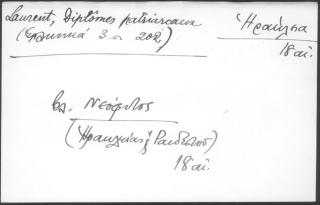 Laurent, Diplômes patriarcaux
(Ἑλληνικά 3 σ 202)
Ἡράκλεια
18 αἰ.
βλ. Νεόφυτος
(Ἡρακλείας ἤ Ραιδεστοῦ)
18 αἰ.